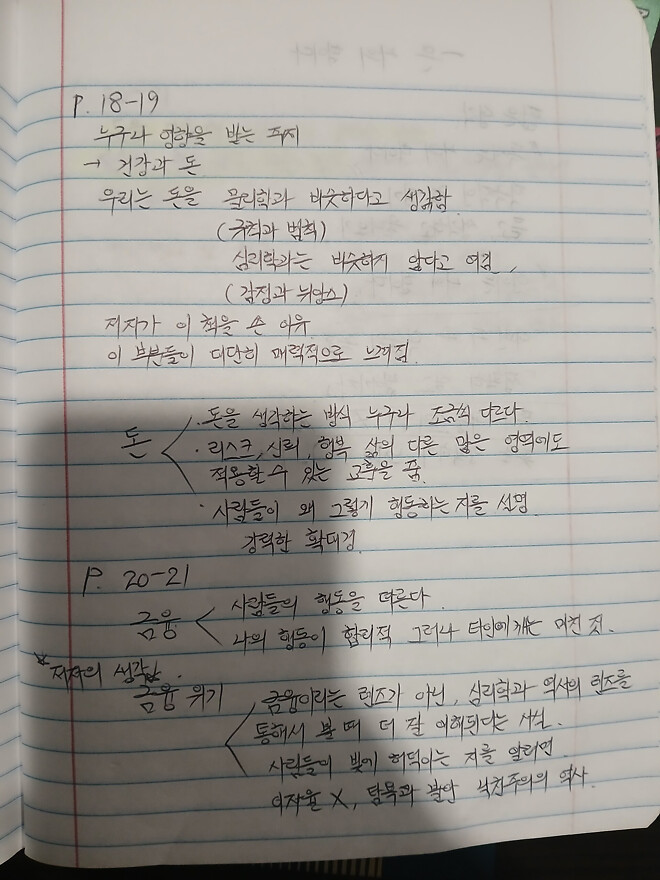 P. 18-19
누구나 영향을 받는
→ 건강과 돈
우리는 돈을 물리학과 비슷하다고 생각함
(규칙과 법칙)
심리학과는 비슷하지 않다고 여김,
(감정과 뉘앙스)
저자가 이 책을 쓴 이유.
이 부분들이 대단히 매력적으로 느껴짐.
돈
· 돈을 생각하는 방식 누구나 조금씩 다르다.
· 리스크, 신뢰, 행복 삶의 다른 많은 영역에도
적용할 수 있는 교훈을 줌.
· 사람들이 왜 그렇게 행동하는 지를 설명
강력한 확대경
P. 20-21
금융
사람들의 행동을 따른다.
나의 행동이 합리적 그러나 타인에게는 미친 것.
* 저자의 생각
금융 위기
금융이라는 렌즈가 아닌, 심리학과 역사의 렌즈를
통해서 볼 때 더 잘 이해된다는 사실.
사람들이 빚에 허덕이는 지를 알려면
이자율 X, 탐욕과 불안 낙천주의의 역사.